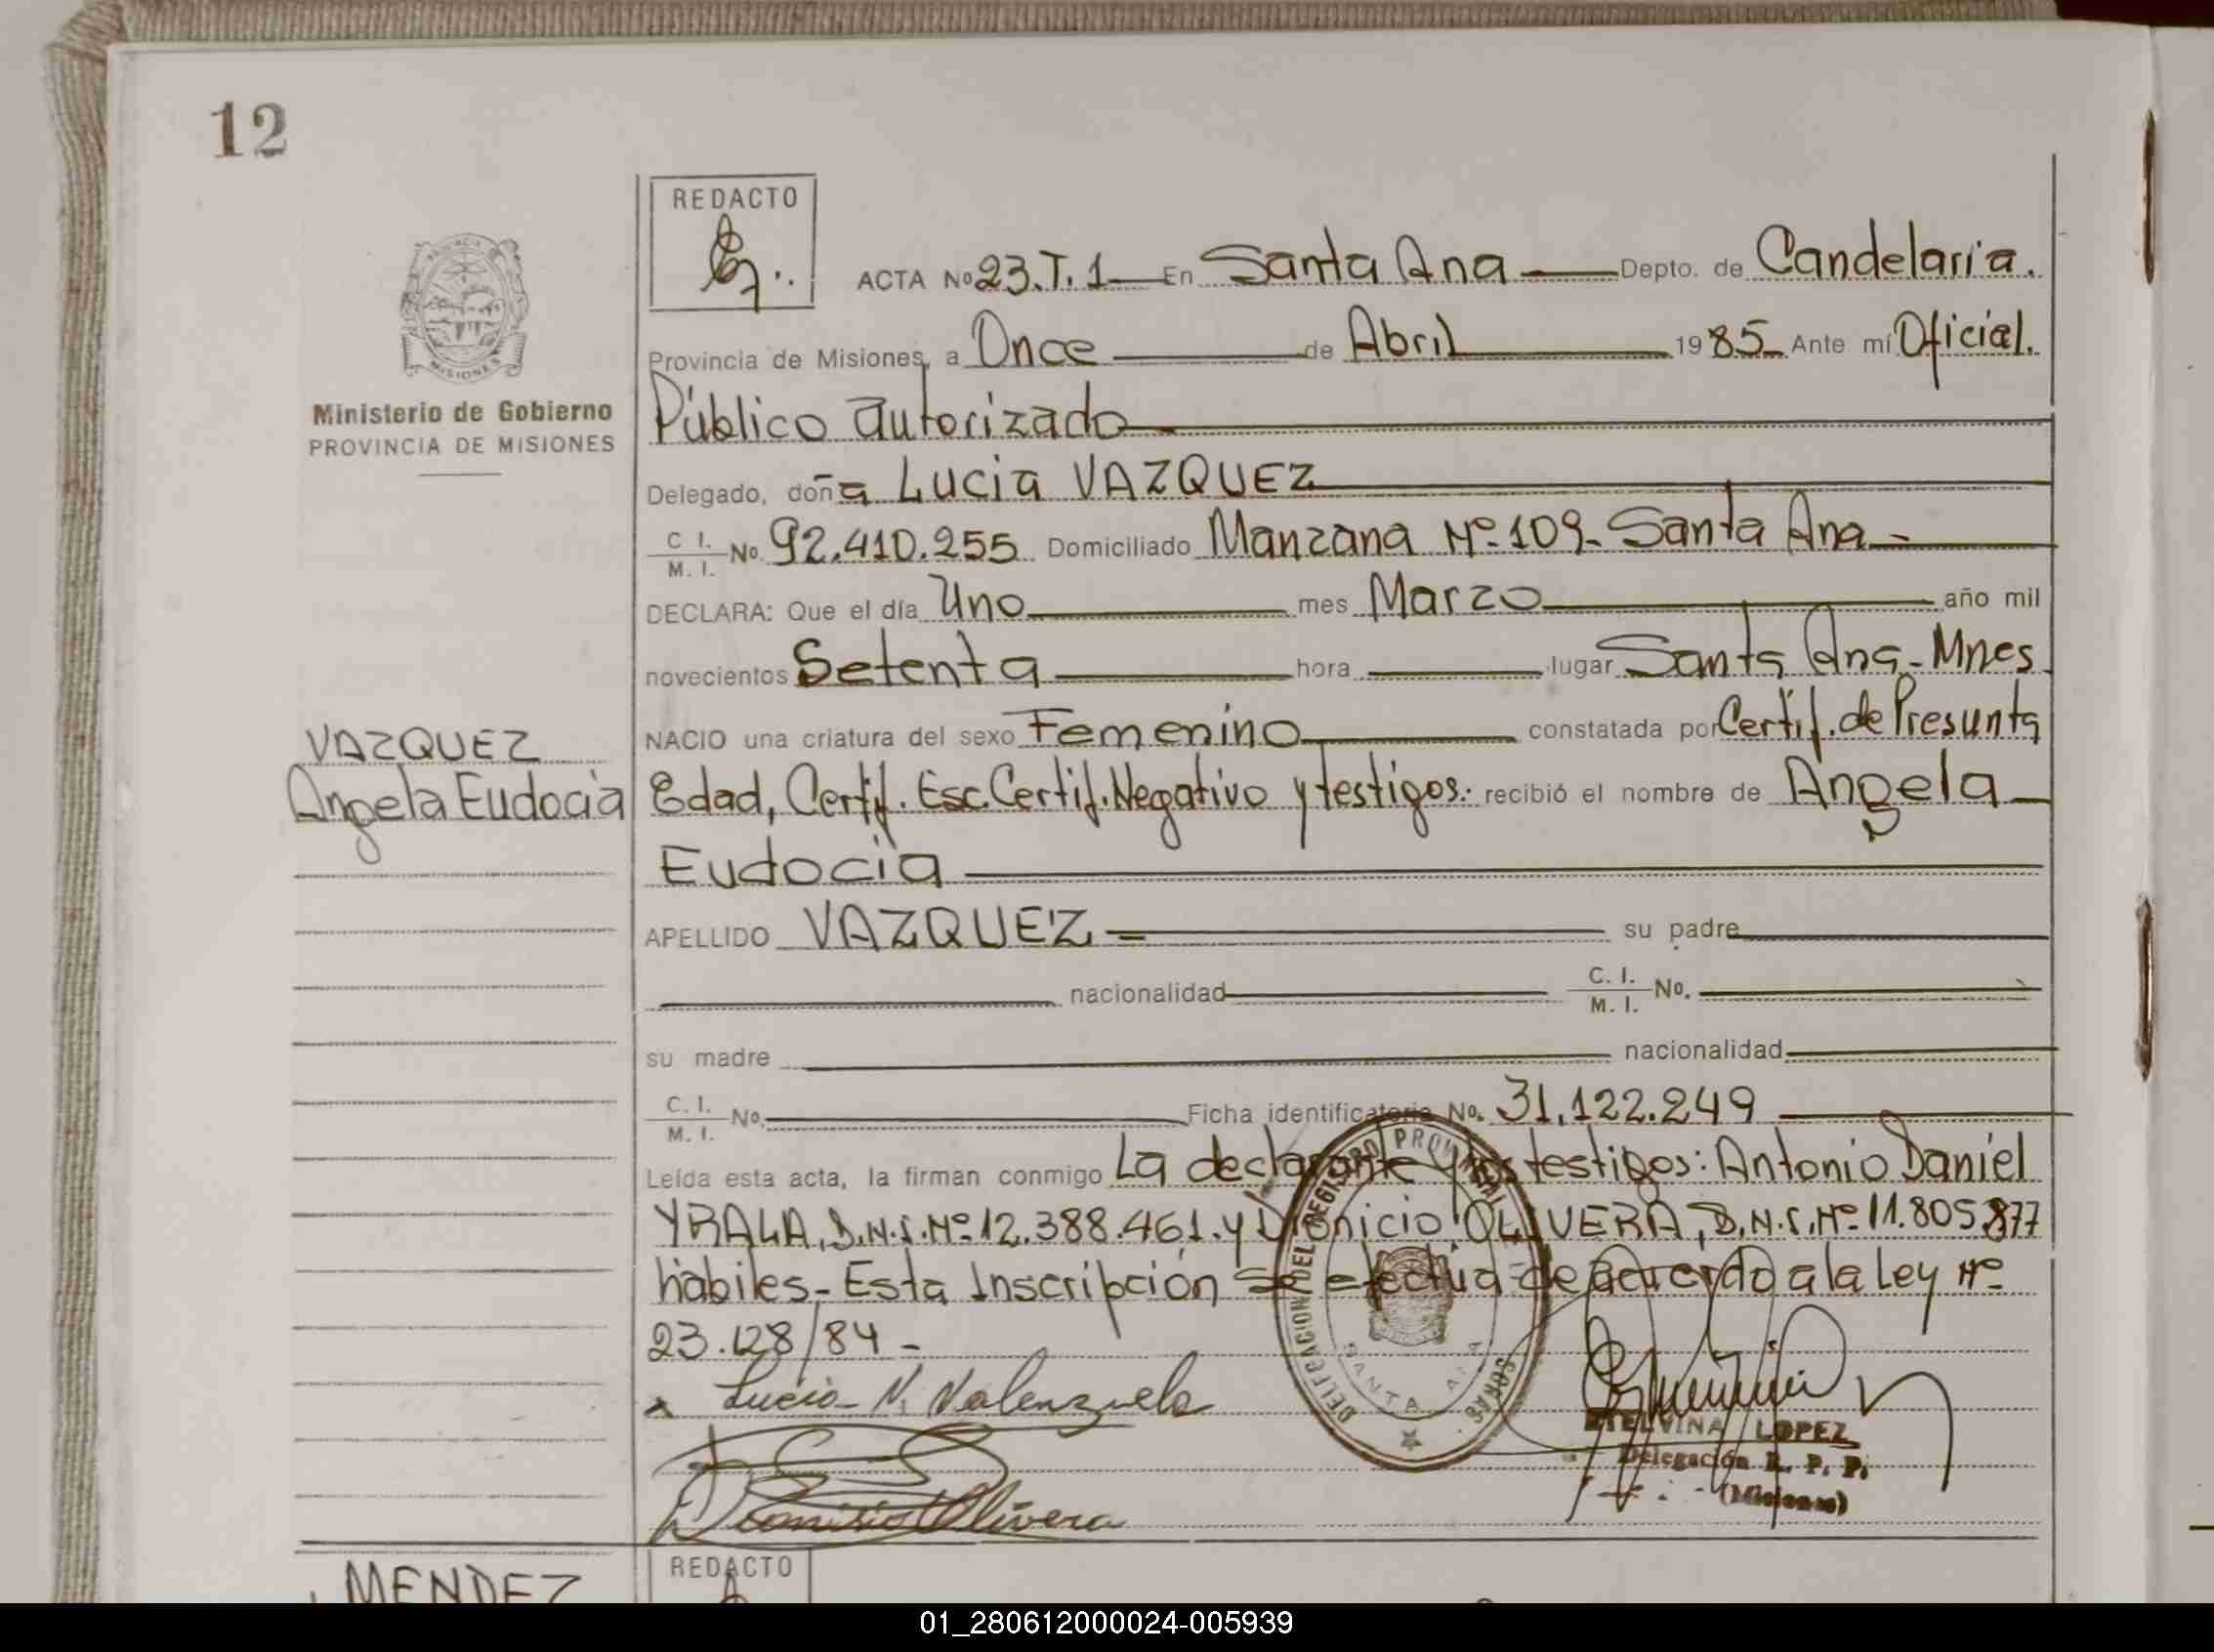 12
REDACTO
ACTA Nº 23.T.1 En Santa Ana Depto. de Candelaria.
Provincia de Misiones, a Once de Abril 1985 Ante mí Oficial.
Ministerio de Gobierno
PROVINCIA DE MISIONES
Público autorizado
Delegado, doña Lucia VAZQUEZ
C I. M. I. No. 92.410.255 Domiciliado Manzana Nº 109- Santa Ana-
DECLARA: Que el día Uno mes Marzo año mil
novecientos Setenta hora lugar Santa Ana-Mnes
NACIO una criatura del sexo Femenino constatada por Certif. de Presunta
VAZQUEZ
Angela Eudocia
Edad, Certif. Esc. Certif. Negativo y testigos: recibió el nombre de Angela
Eudocia
APELLIDO VAZQUEZ su padre
nacionalidad C. I. M. I. No.
su madre nacionalidad
C. I. M. I. No. Ficha identificatoria No. 31.122.249
Leída esta acta, la firman conmigo La declarante y los testigos: Antonio Daniel
YRALA, D.N.I. Nº 12.388.461. y Dionicio OLIVERA, D.N.I. Nº 11.805.877
hábiles- Esta Inscripción se efectua de acuerdo a la Ley Nº
23.128/84-
Lucia V. Valenzuela
Dionisio Olivera
DELEGACION DEL REGISTRO PROVINCIAL
SANTA ANA
ETELVINA LOPEZ
Delegación R. P. P.
(Misiones)
MENDEZ
REDACTO
01_280612000024-005939